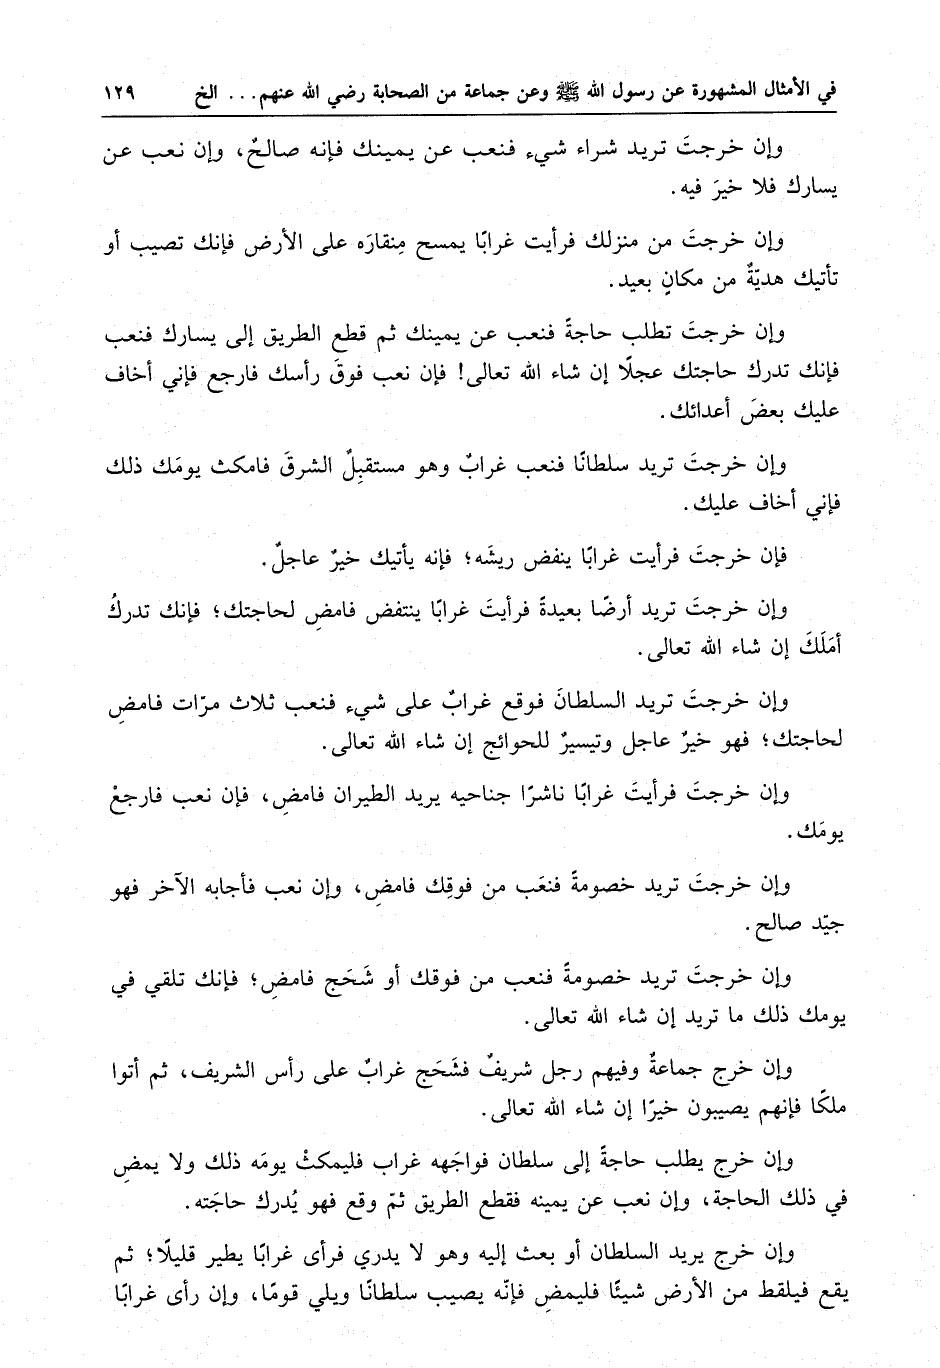 في الأمثال المشهورة عن رسول الله ﷺ وعن جماعة من الصحابة رضي الله عنهم... الخ ١٢٩
وإن خرجتَ تريد شراء شيء فنعب عن يمينك فإنه صالحٌ، وإن نعب عن
يسارك فلا خيرَ فيه.
وإن خرجتَ من منزلك فرأيت غرابًا يمسح مِنقارَه على الأرض فإنك تصيب أو
تأتيك هديّةٌ من مكانٍ بعيد.
وإن خرجتَ تطلب حاجةً فنعب عن يمينك ثم قطع الطريق إلى يسارك فنعب
فإنك تدرك حاجتك عجلًا إن شاء الله تعالى! فإن نعب فوقَ رأسك فارجع فإني أخاف
عليك بعضَ أعدائك.
وإن خرجتَ تريد سلطانًا فنعب غرابٌ وهو مستقبِلٌ الشرقَ فامكث يومَك ذلك
فإني أخاف عليك.
فإن خرجتَ فرأيت غرابًا ينفض ريشَه؛ فإنه يأتيك خيرٌ عاجلٌ.
وإن خرجتَ تريد أرضًا بعيدةً فرأيتَ غرابًا ينتفض فامضِ لحاجتك؛ فإنك تدركُ
أمَلَكَ إن شاء الله تعالى.
وإن خرجتَ تريد السلطانَ فوقع غرابٌ على شيء فنعب ثلاث مرّات فامضِ
لحاجتك؛ فهو خيرٌ عاجل وتيسيرٌ للحوائج إن شاء الله تعالى.
وإن خرجتَ فرأيتَ غرابًا ناشرًا جناحيه يريد الطيران فامضِ، فإن نعب فارجعْ
يومَك.
وإن خرجتَ تريد خصومةً فنعَب من فوقِك فامضِ، وإن نعب فأجابه الآخر فهو
جيّد صالح.
وإن خرجتَ تريد خصومةً فنعب من فوقك أو شَحَج فامضِ؛ فإنك تلقي في
يومك ذلك ما تريد إن شاء الله تعالى.
وإن خرج جماعةٌ وفيهم رجل شريفٌ فشَحَج غرابٌ على رأس الشريف، ثم أتوا
ملكًا فإنهم يصيبون خيرًا إن شاء الله تعالى.
وإن خرج يطلب حاجةً إلى سلطان فواجَهه غراب فليمكثْ يومَه ذلك ولا يمضِ
في ذلك الحاجة، وإن نعب عن يمينه فقطع الطريق ثمّ وقع فهو يُدرك حاجَته.
وإن خرج يريد السلطان أو بعث إليه وهو لا يدري فرأى غرابًا يطير قليلًا؛ ثم
يقع فيلقط من الأرض شيئًا فليمضِ فإنّه يصيب سلطانًا ويلي قومًا، وإن رأى غرابًا